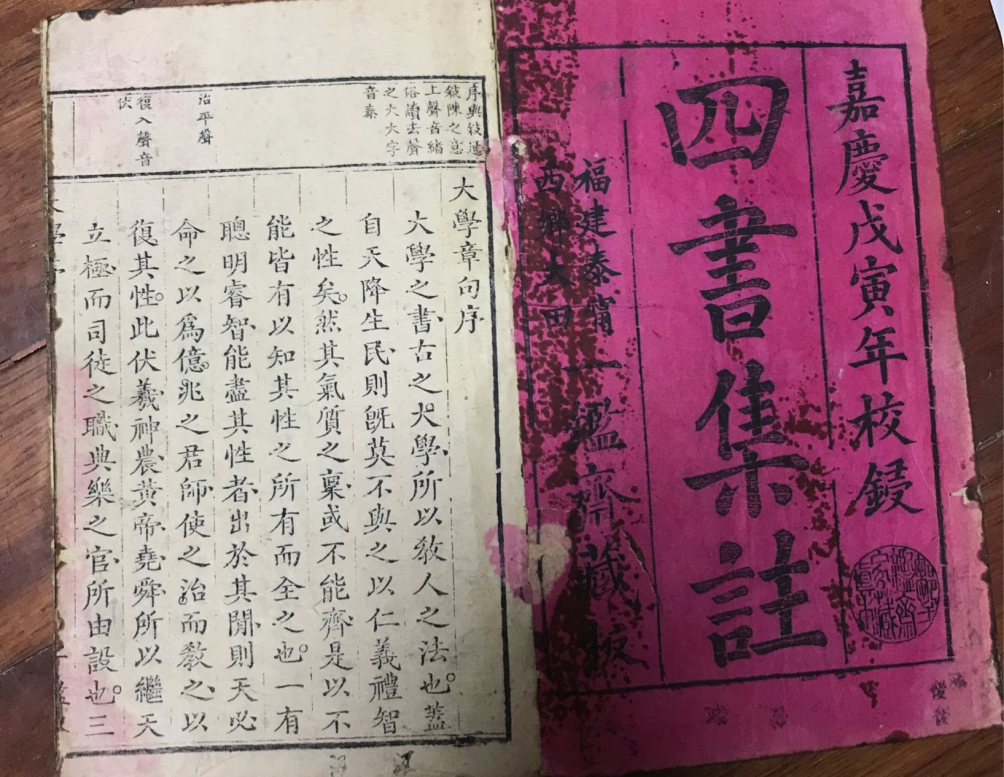 嘉慶戊寅年校鋟
四書集註
福建泰甯一鑑齋藏板
西鄉大田
序與敍通
敍陳之意
上聲音緒
俗讀去聲
之大大字
音泰
治平聲
復入聲音
伏
大學章句序
大學之書古之大學所以敎人之法也蓋
自天降生民則旣莫不與之以仁義禮智
之性矣然其氣質之稟或不能齊是以不
能皆有以知其性之所有而全之也一有
聰明睿智能盡其性者出於其間則天必
命之以爲億兆之君師使之治而敎之以
復其性此伏羲神農黃帝堯舜所以繼天
立極而司徒之職典樂之官所由設也三